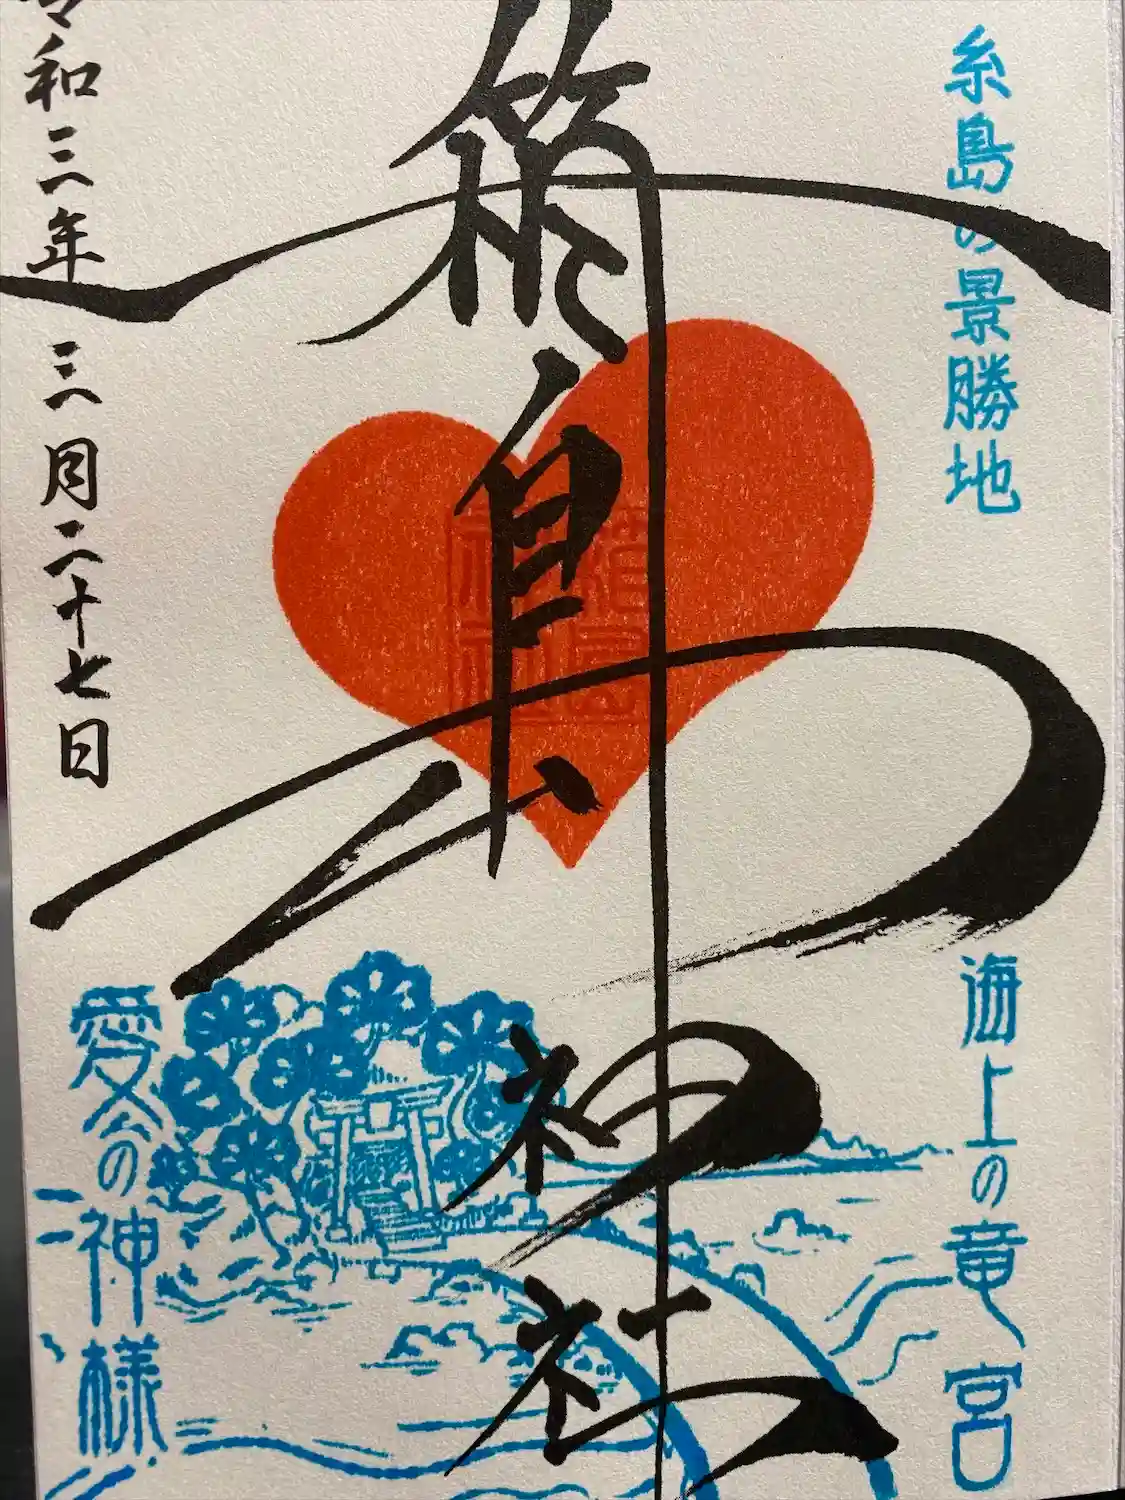 糸島の景勝地
海上の竜宮
箱島神社
箱島
神社
令和三年三月二十七日
愛の神様